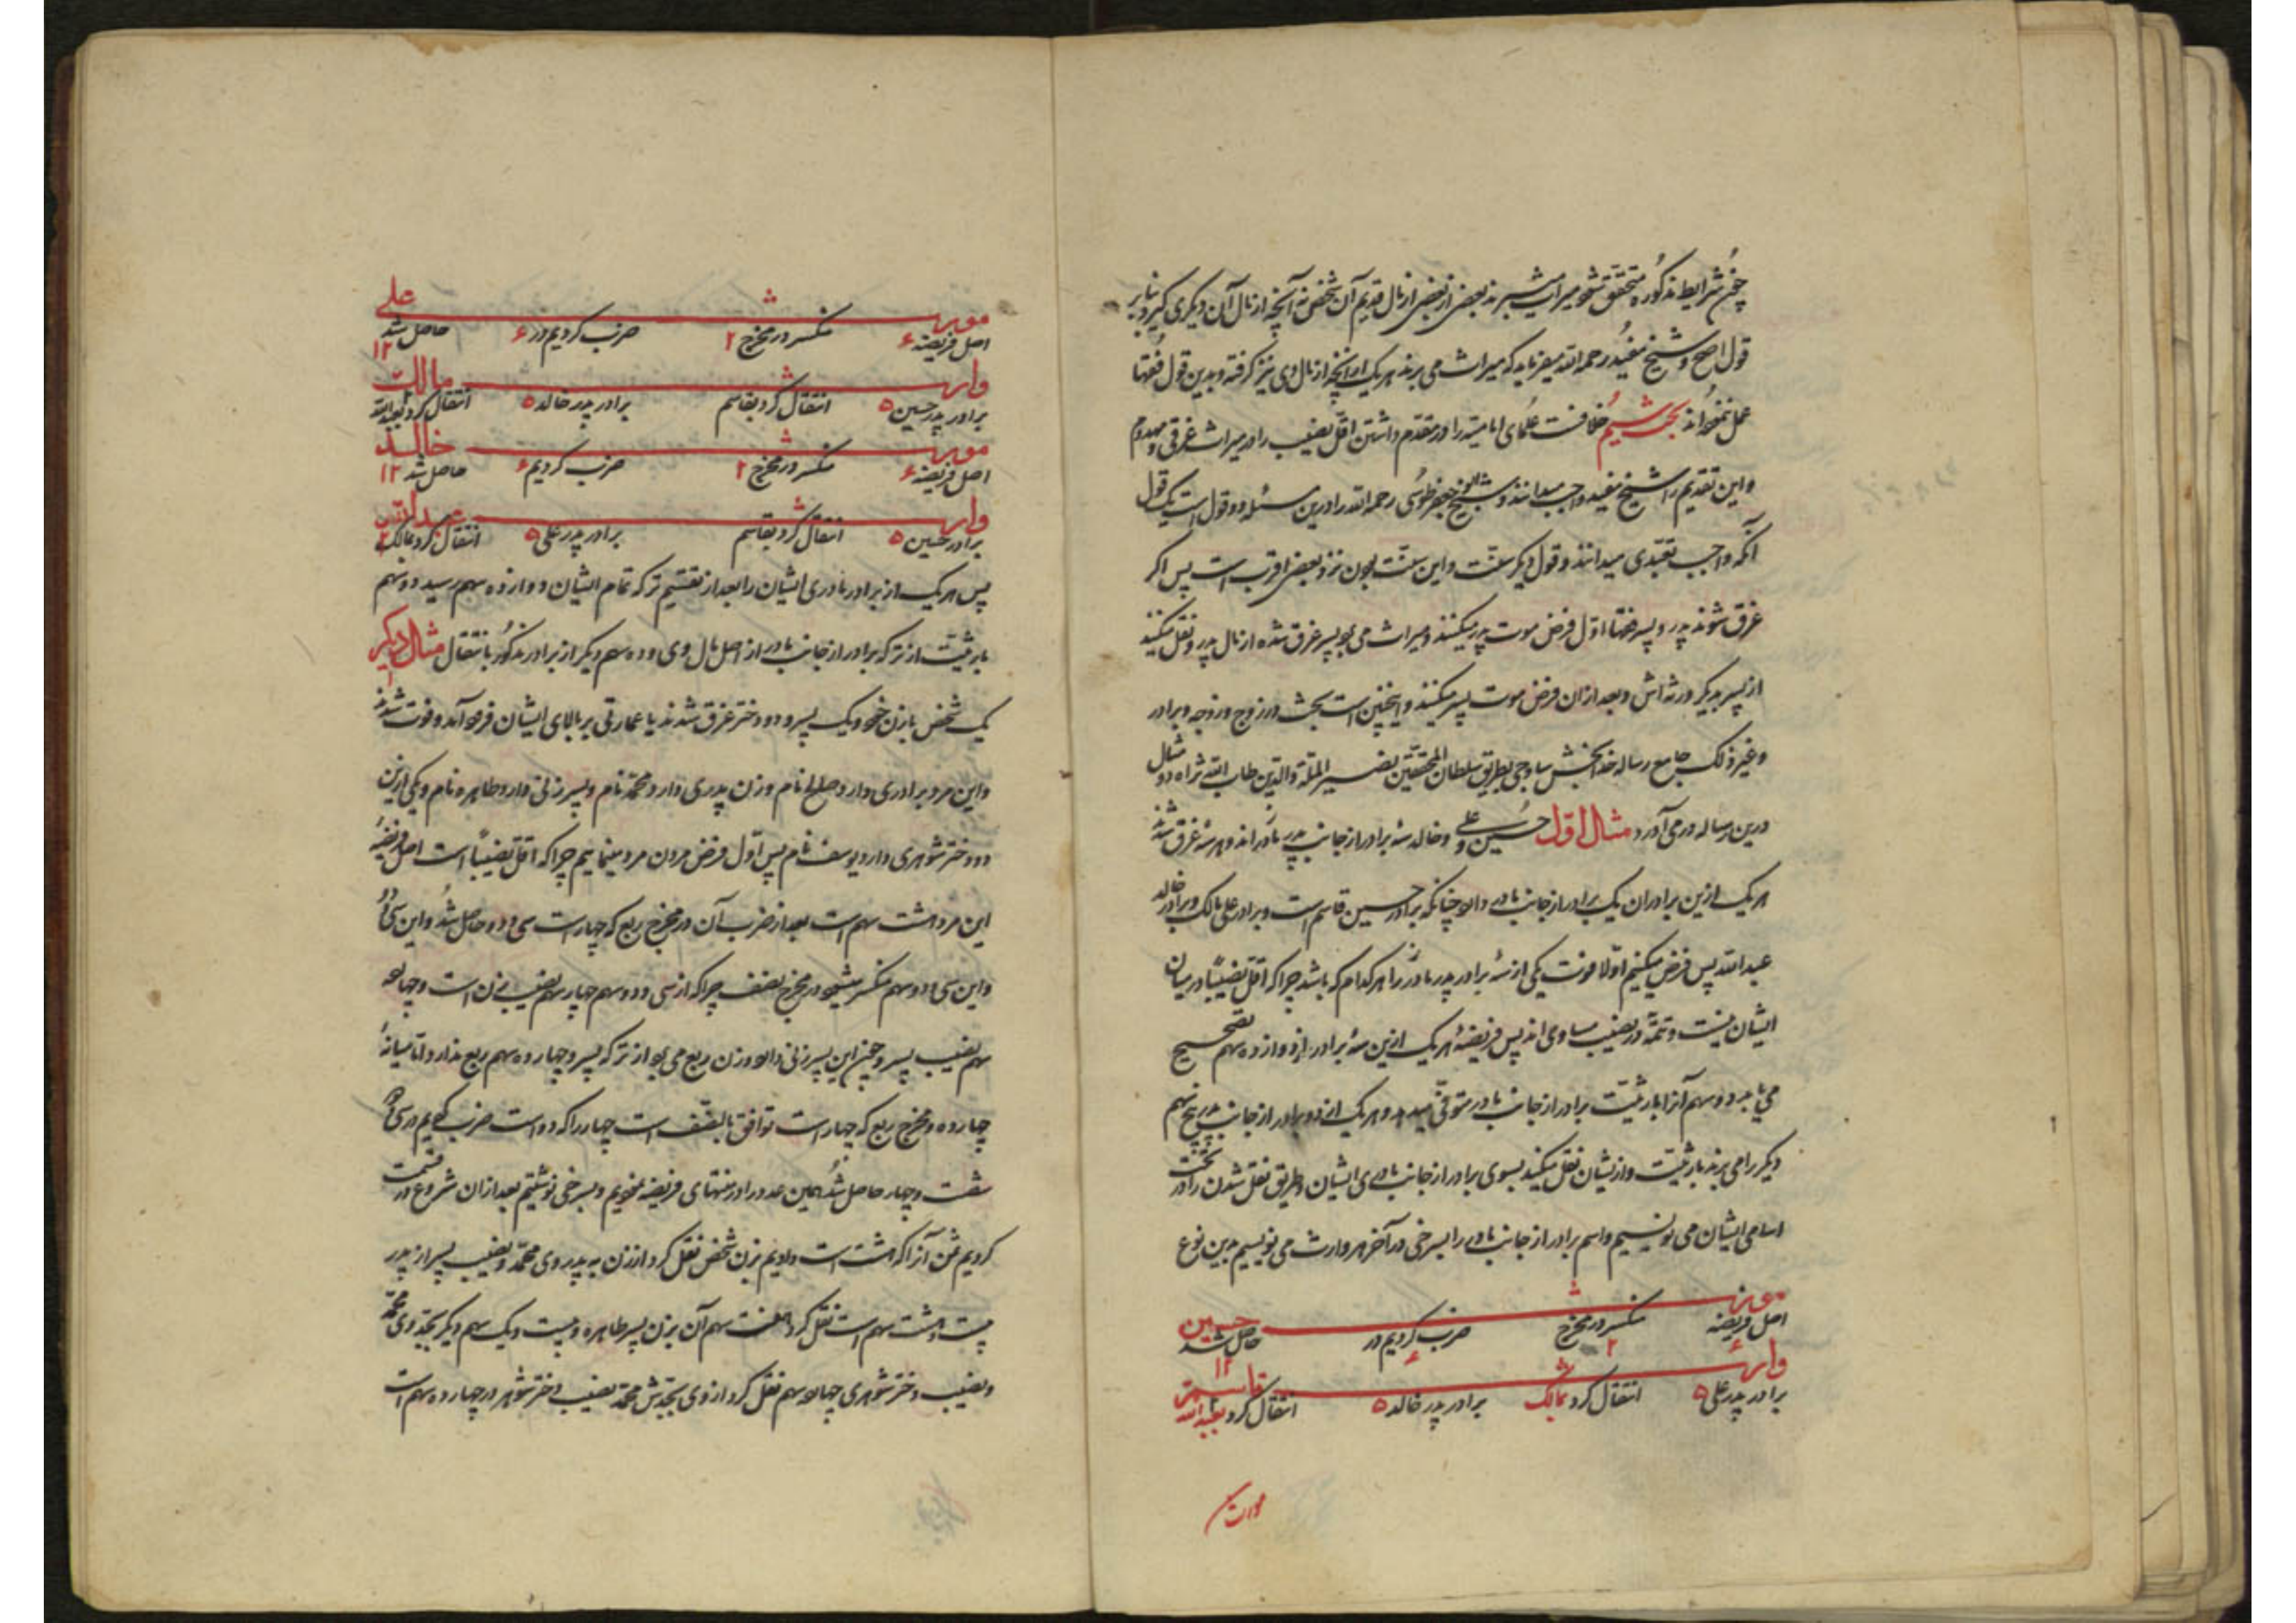 چون شرایط مذکوره متحقق شود میراث میبرند بعضی از بعضی از مال قدیم آن شخص نه آنچه از مال آن دیگری گیرد بنا بر
قول اصح و شیخ مفید رحمه الله میفرماید که میراث می برند هر یک از آنچه از مال وی نیز گرفته و بدین قول فقها
عمل ننموده‌اند بحث ششم خلافست علمای امامیه را در مقدم داشتن اقل نصیب را در میراث غرقی و مهدوم
و این تقدیم را شیخ مفید واجب میدانند و شیخ ابو جعفر طوسی رحمه الله را درین مسئله دو قول است یک قول
آنکه واجب تعبدی میدانند و قول دیگر سنت و این سنت بودن نزد بعضی اقرب است پس اگر
غرق شوند پدر و پسر فقها اول فرض موت پدر میکنند و میراث می برد پسر غرق شده از مال پدر و نقل میکند
از پسر بدیگر ورثه اش و بعد از ان فرض موت پسر میکنند و اینچنین است بحث در زوج و زوجه و برادر
و غیر ذلک جامع رساله خدابخش ساوجی بطریق سلطان المحققین نصیر الملة والدین طاب الله ثراه دو مثال
درین رساله درمی آورد مثال اول حسین و علی و خالد سه برادر از جانب پدر مادراند و هر سه غرق شدند
هر یک ازین برادران یک برادر از جانب مادر دارد چنانکه برادر حسین قاسم است و برادر علی مالک و برادر خالد
عبدالله پس فرض میکنیم اولا فوت یکی از سه برادر پدر مادر را هر کدام که باشد چرا که اقل نصیباً در میان
ایشان نیست و تتمه در نصیب مساوی اند پس فریضهٔ هر یک ازین سه برادر از دوازده سهم تصحیح
می یابد دو سهم آنرا بارثیت برادر از جانب مادر متوفی میدهد و هر یک از دو برادر از جانب پدر پنج سهم
دیگر را می برند بارثیت و ازیشان نقل میکنند بسوی برادر از جانب مادری ایشان و طریق نقل شدن را در تحت
اسامی ایشان می نویسیم و اسم برادر از جانب مادر را بسرخی در آخر هر وارث می نویسیم بدین نوع
مورث حسین
اصل فریضه ۶ منکسر در مخرج ۲ ضرب کردیم در ۶ حاصل شد ۱۲
وارث قاسم ۲
برادر پدر علی ۵ انتقال کرد بمالک برادر پدر خالد ۵ انتقال کرد بعبدالله
مورث
مورث علی
اصل فریضه ۶ منکسر در مخرج ۲ ضرب کردیم در ۶ حاصل شد ۱۲
وارث مالک ۲
برادر پدر حسین ۵ انتقال کرد بقاسم برادر پدر خالد ۵ انتقال کرد بعبدالله
مورث خالد
اصل فریضه ۶ منکسر در مخرج ۲ ضرب کردیم ۶ حاصل شد ۱۲
وارث عبدالله ۲
برادر حسین ۵ انتقال کرد بقاسم برادر پدر علی ۵ انتقال کرد بمالک
پس هر یک از برادر مادری ایشان را بعد از تقسیم ترکه تمام ایشان دوازده سهم رسید دو سهم
بارثیت از ترکه برادر از جانب مادر از اصل مال وی و ده سهم دیگر از برادر مذکور بانتقال مثال دیگر
یک شخص با زن خود و یک پسر و دو دختر غرق شدند یا عمارتی بر بالای ایشان فرود آمد و فوت شدند
و این مرد برادری دارد صالح نام و زن پدری دارد محمد نام و پسر زنی دارد طاهره نام و یکی ازین
دو دختر شوهری دارد یوسف نام پس اول فرض مردن مرد مینماییم چرا که اقل نصیباً است اصل فریضهٔ
این مرد هشت سهم است بعد از ضرب آن در مخرج ربع که چهار است سی و دو حاصل شد و این سی و دو
و این سی و دو سهم منکسر میشود در مخرج نصف چرا که از سی و دو سهم چهار سهم نصیب زن است و چهارده
سهم نصیب پسر و چون این پسر زنی دارد و زن ربع می برد از ترکه پسر و چهارده سهم ربع ندارد اما میانهٔ
چهارده و مخرج ربع که چهار است توافق بالنصف است چهار را که دو است ضرب کردیم در سی و دو
شصت و چهار حاصل شد همین عدد را در منتهای فریضه نمودیم و بسرخی نوشتیم بعد از ان شروع در قسمت
کردیم ثمن آنرا که هشت است دادیم بزن شخص نقل کرد از زن به پدر وی محمد و نصیب پسر از پدر
بیست و هشت سهم است نقل کرد هفت سهم آن بزن پسر طاهره و بیست و یک سهم دیگر بجد وی محمد
و نصیب دختر شوهری چهارده سهم نقل کرد از وی بجدش محمد نصیب دختر شوهر در چهارده سهم است